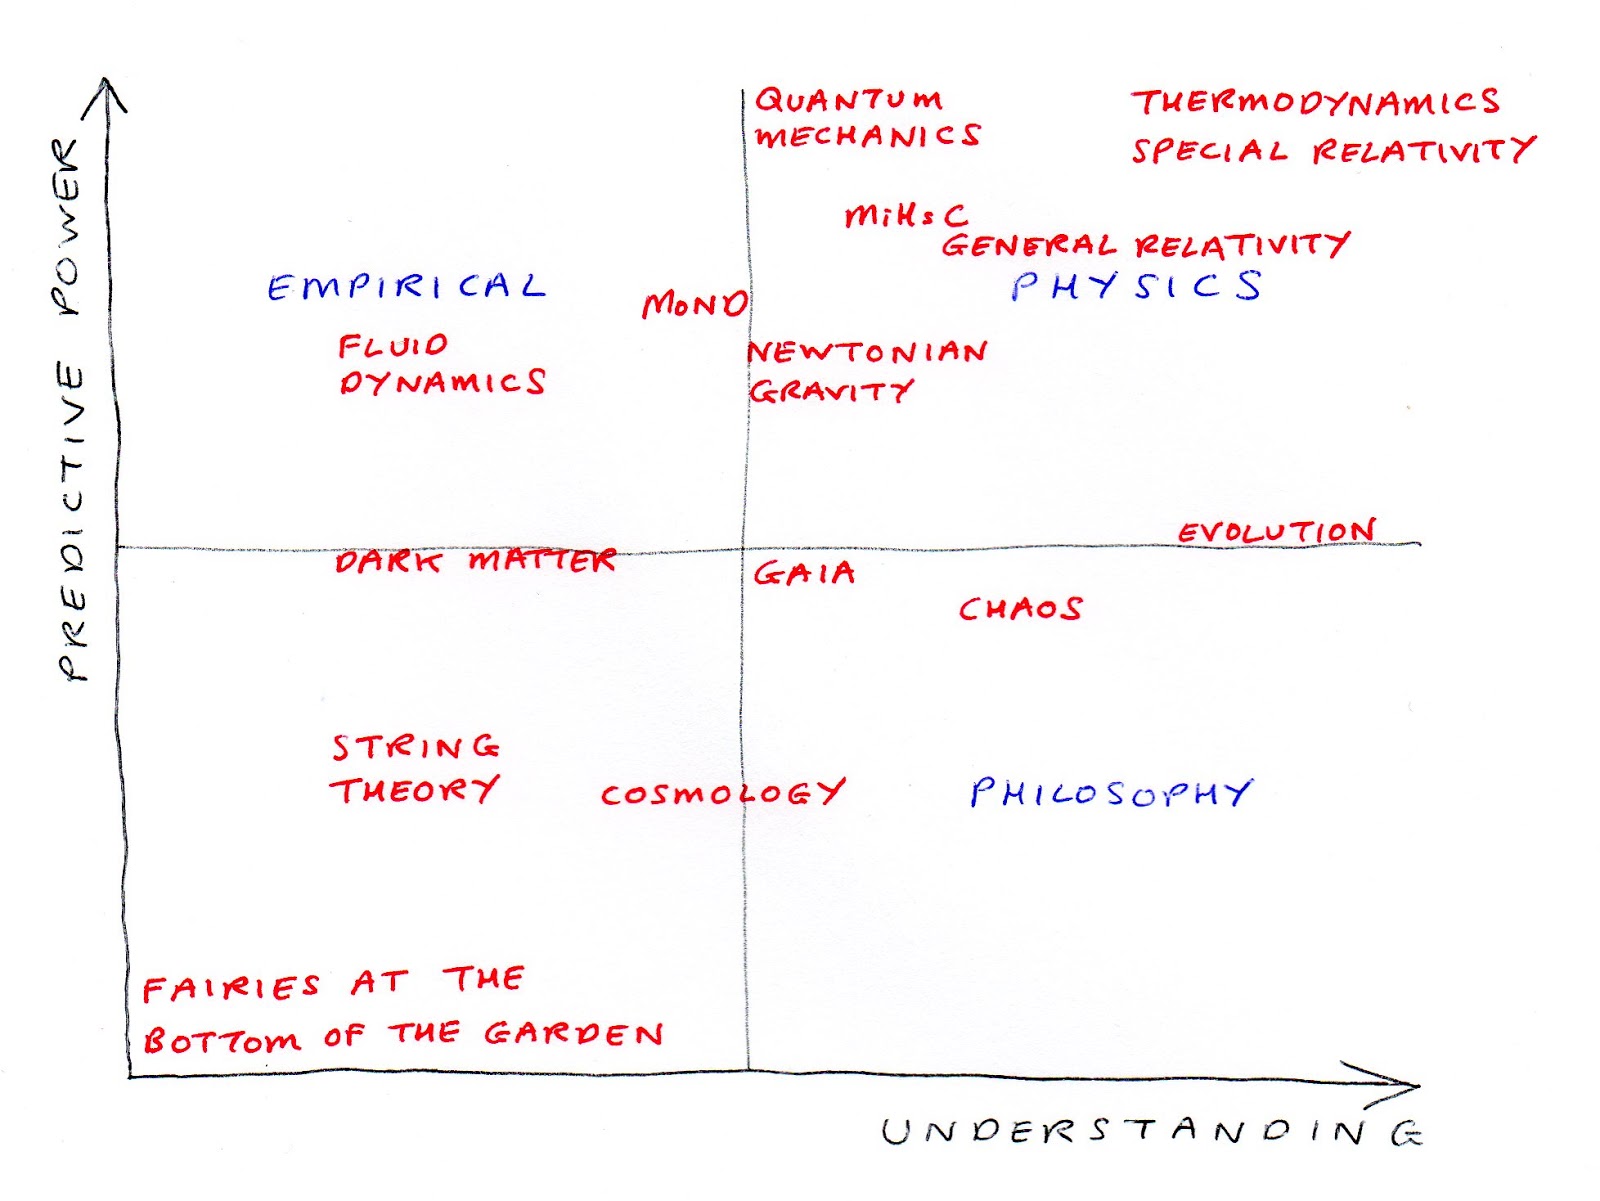 PREDICTIVE POWER
QUANTUM
MECHANICS
THERMODYNAMICS
SPECIAL RELATIVITY
MiHsC
GENERAL RELATIVITY
EMPIRICAL
PHYSICS
MOND
FLUID
DYNAMICS
NEWTONIAN
GRAVITY
EVOLUTION
DARK MATTER
GAIA
CHAOS
STRING
THEORY
COSMOLOGY
PHILOSOPHY
FAIRIES AT THE
BOTTOM OF THE GARDEN
UNDERSTANDING